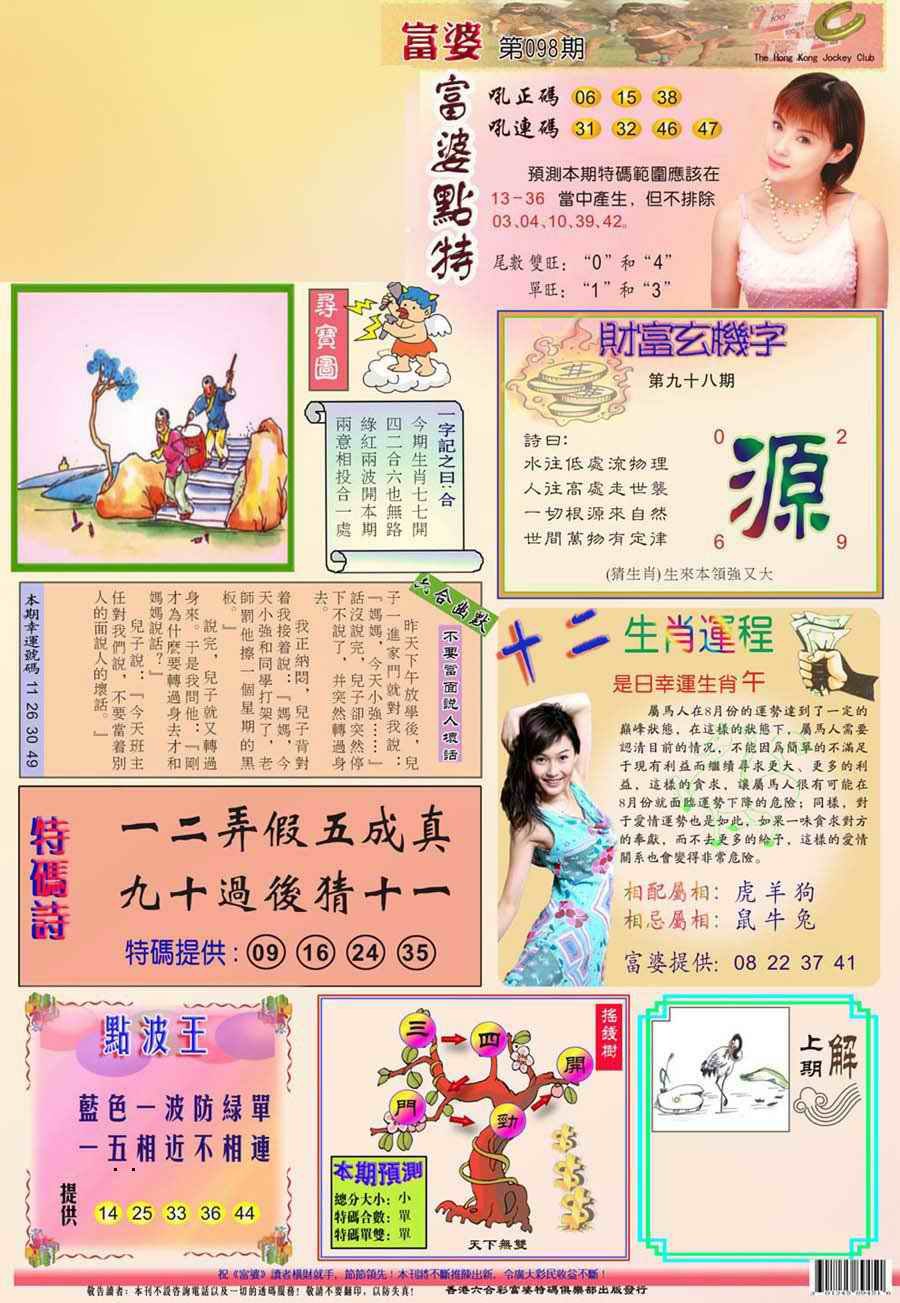 富婆 第098期
The Hong Kong Jockey Club
富婆點特
吼正碼 06 15 38
吼連碼 31 32 46 47
預測本期特碼範圍應該在
13-36 當中產生，但不排除
03、04、10、39、42。
尾數雙旺：“0”和“4”
單旺：“1”和“3”
尋寶圖
一字記之曰：合
今期生肖七七開
四二合六也無路
綠紅兩波開本期
兩意相投合一處
財富玄機字
第九十八期
詩曰：
水往低處流物理
人往高處走世襲
一切根源來自然
世間萬物有定律
0 2
源
6 9
(猜生肖)生來本領強又大
六合幽默
不要當面說人壞話
昨天下午放學後，兒
子一進家門就對我說：
『媽媽，今天小強……』
話沒說完，兒子卻突然停
下不說了，并突然轉過身
去。
我正納悶，兒子背對
着我接着說：『媽媽，今
天小強和同學打架了，老
師劉他擦一個星期的黑
板。』
說完，兒子就又轉過
身來。于是我問他：『剛
才為什麼要轉過身去才和
媽媽說話？』
兒子說：『今天班主
任對我們說，不要當着別
人的面說人的壞話。』
本期幸運號碼 11 26 30 49
十二生肖運程
是日幸運生肖 午
屬馬人在8月份的運勢達到了一定的
巔峰狀態，在這樣的狀態下，屬馬人需要
認清目前的情况，不能因爲簡單的不滿足
于現有利益而繼續尋求更大、更多的利
益，這樣的貪求，讓屬馬人很有可能在
8月份就面臨運勢下降的危險；同樣，對
于愛情運勢也是如此，如果一味貪求對方
的奉獻，而不去更多的給予，這樣的愛情
關系也會變得非常危險。
相配屬相：虎 羊 狗
相忌屬相：鼠 牛 兔
富婆提供：08 22 37 41
特碼詩
一二弄假五成真
九十過後猜十一
特碼提供：09 16 24 35
點波王
藍色一波防綠單
一五相近不相連
提供 14 25 33 36 44
搖錢樹
三 四 開
門 勁
本期預測
總分大小：小
特碼合數：單
特碼單雙：單
天下無雙
上期解
祝《富婆》讀者橫財就手，節節領先！本刊將不斷推陳出新，令廣大彩民收益不斷！
敬告讀者：本刊不設咨詢電話以及一切的透碼服務！敬請不要翻印，以防失真！ 香港六合彩富婆特碼俱樂部出版發行